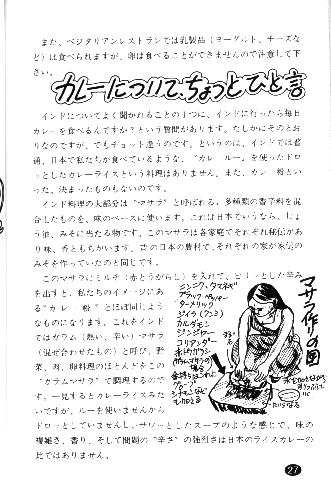 また、ベジタリアンレストランでは乳製品（ヨーグルト、チーズな
ど）は食べられますが、卵は食べることができませんので注意して下
さい。
カレーについて、ちょっとひと言
インドについてよく聞かれることの1つに、インドに行ったら毎日
カレーを食べるんですか？という質問があります。たしかにそのとお
りなのですが、でもチョット違うのです。というのは、インドでは普
通、日本で私たちが食べているような、“カレールー”を使ったドロ
ッとしたカレーライスという料理はありません。また、カレー粉とい
った、決まったものもないのです。
インド料理の大部分は“マサラ”と呼ばれる、多種類の香辛料を混
合したものを、味のベースに使います。これは日本でいうなら、しょ
う油、みそに当たる物です。このマサラは各家庭でそれぞれ秘伝があ
り味、香ともちがいます。昔の日本の農村で、それぞれの家が家伝の
みそを作っていたのと同じです。
このマサラにミルチ（赤とうがらし）を入れて、ピリッとした辛み
を出すと、私たちのイメージにあ
る“カレー粉”とほぼ同じよう
なものになります。これをインド
ではガラム（熱い、辛い）マサラ
（混ぜ合わせたもの）と呼び、野
菜、肉、卵料理のほとんどをこの
“ガラムマサラ”で調理するので
す。一見するとカレーライスみた
いですが、ルーを使いませんから
ドロッとしていませんし、サラッとしたスープのような感じで、味の
複雑さ、香り、そして問題の“辛さ”の強烈さは日本のライスカレーの
比ではありません。
マサラ作りの図
ニンニク、タマネギ
ブラックペッパー
ターメリック
ジイラ（クミン）
カルダモン
ジンジャー
コリアンダー
赤トウガラシ
ガラムマサラの
場合
シナモンなど
27